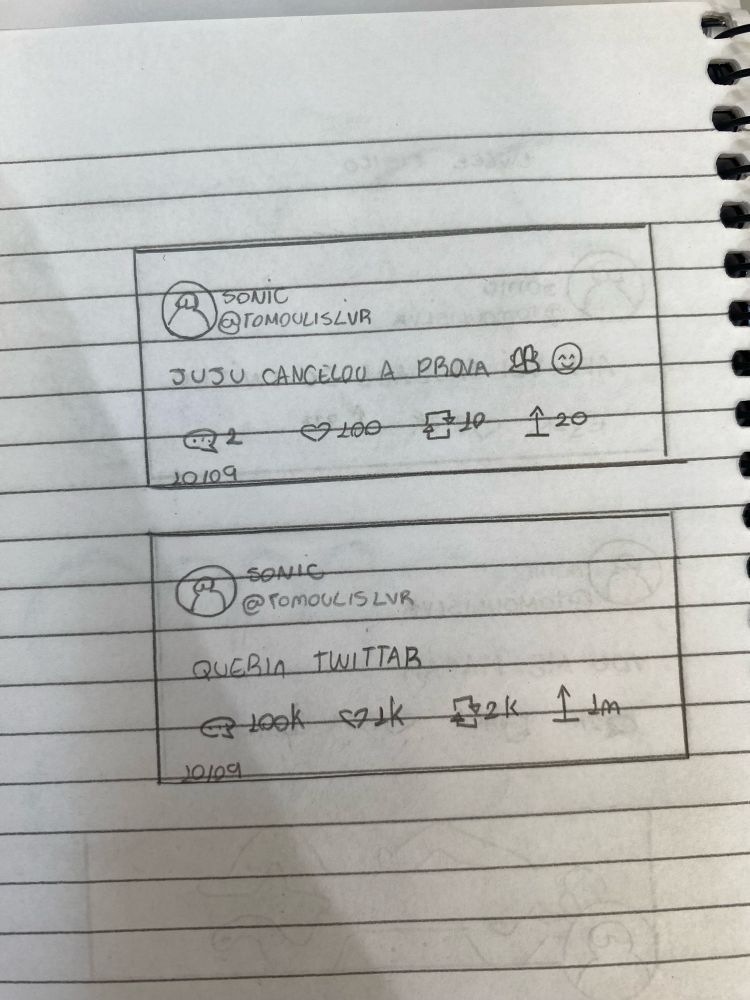 SONIC
@TOMOULISLVR
JUJU CANCELOU A PROVA
2 100 10 20
10/09
SONIC
@TOMOULISLVR
QUERIA TWITTAR
100K 1K 2K 1M
10/09